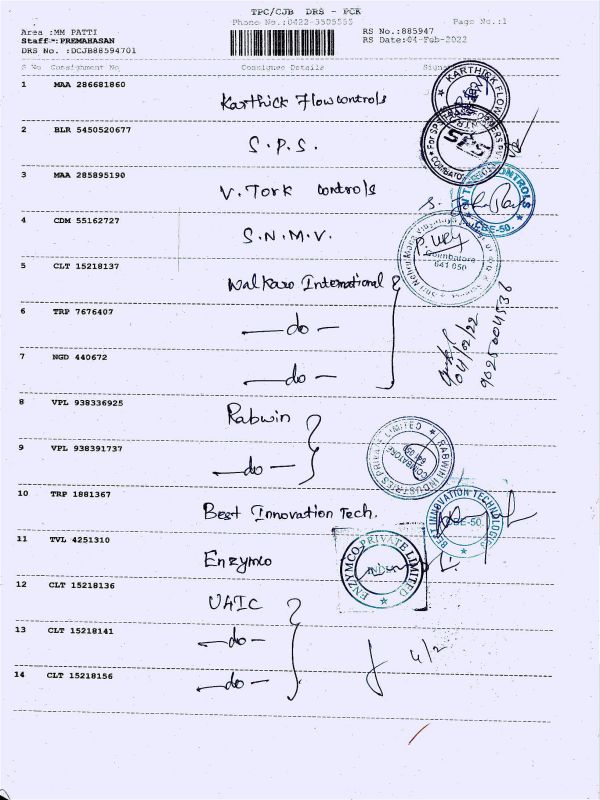 TPC/CJB DRS - PCK
Phone No.:0422-3505555
Page No.:1
Area :MM PATTI
Staff :PREMAHASAN
DRS No. :DCJB88594701
RS No.:885947
RS Date:04-Feb-2022
S No Consignment No Consignee Details
1 MAA 286681860 Karthick Flowcontrols
2 BLR 5450520677 S.P.S.
3 MAA 285895190 V. Tork controls
4 CDM 55162727 S.N.M.V.
5 CLT 15218137 Walkaro International
6 TRP 7676407 —do—
7 NGD 440672 —do—
04/02/22
8 VPL 938336925 Rabwin
9 VPL 938391737 —do—
RABWIN INDUSTRIES PRIVATE LIMITED
COIMBATORE
10 TRP 1881367 Best Innovation Tech.
BEST INNOVATION TECHNOLOGIES
CBE-50.
11 TVL 4251310 Enzymco
ENZYMCO PRIVATE LIMITED
INDIA
12 CLT 15218136 UAIC
13 CLT 15218141 —do—
4/2
14 CLT 15218156 —do—
KARTHICK FLOW
SPS
COIMBATORE
CONTROLS
CBE-50.
Coimbatore
641 050